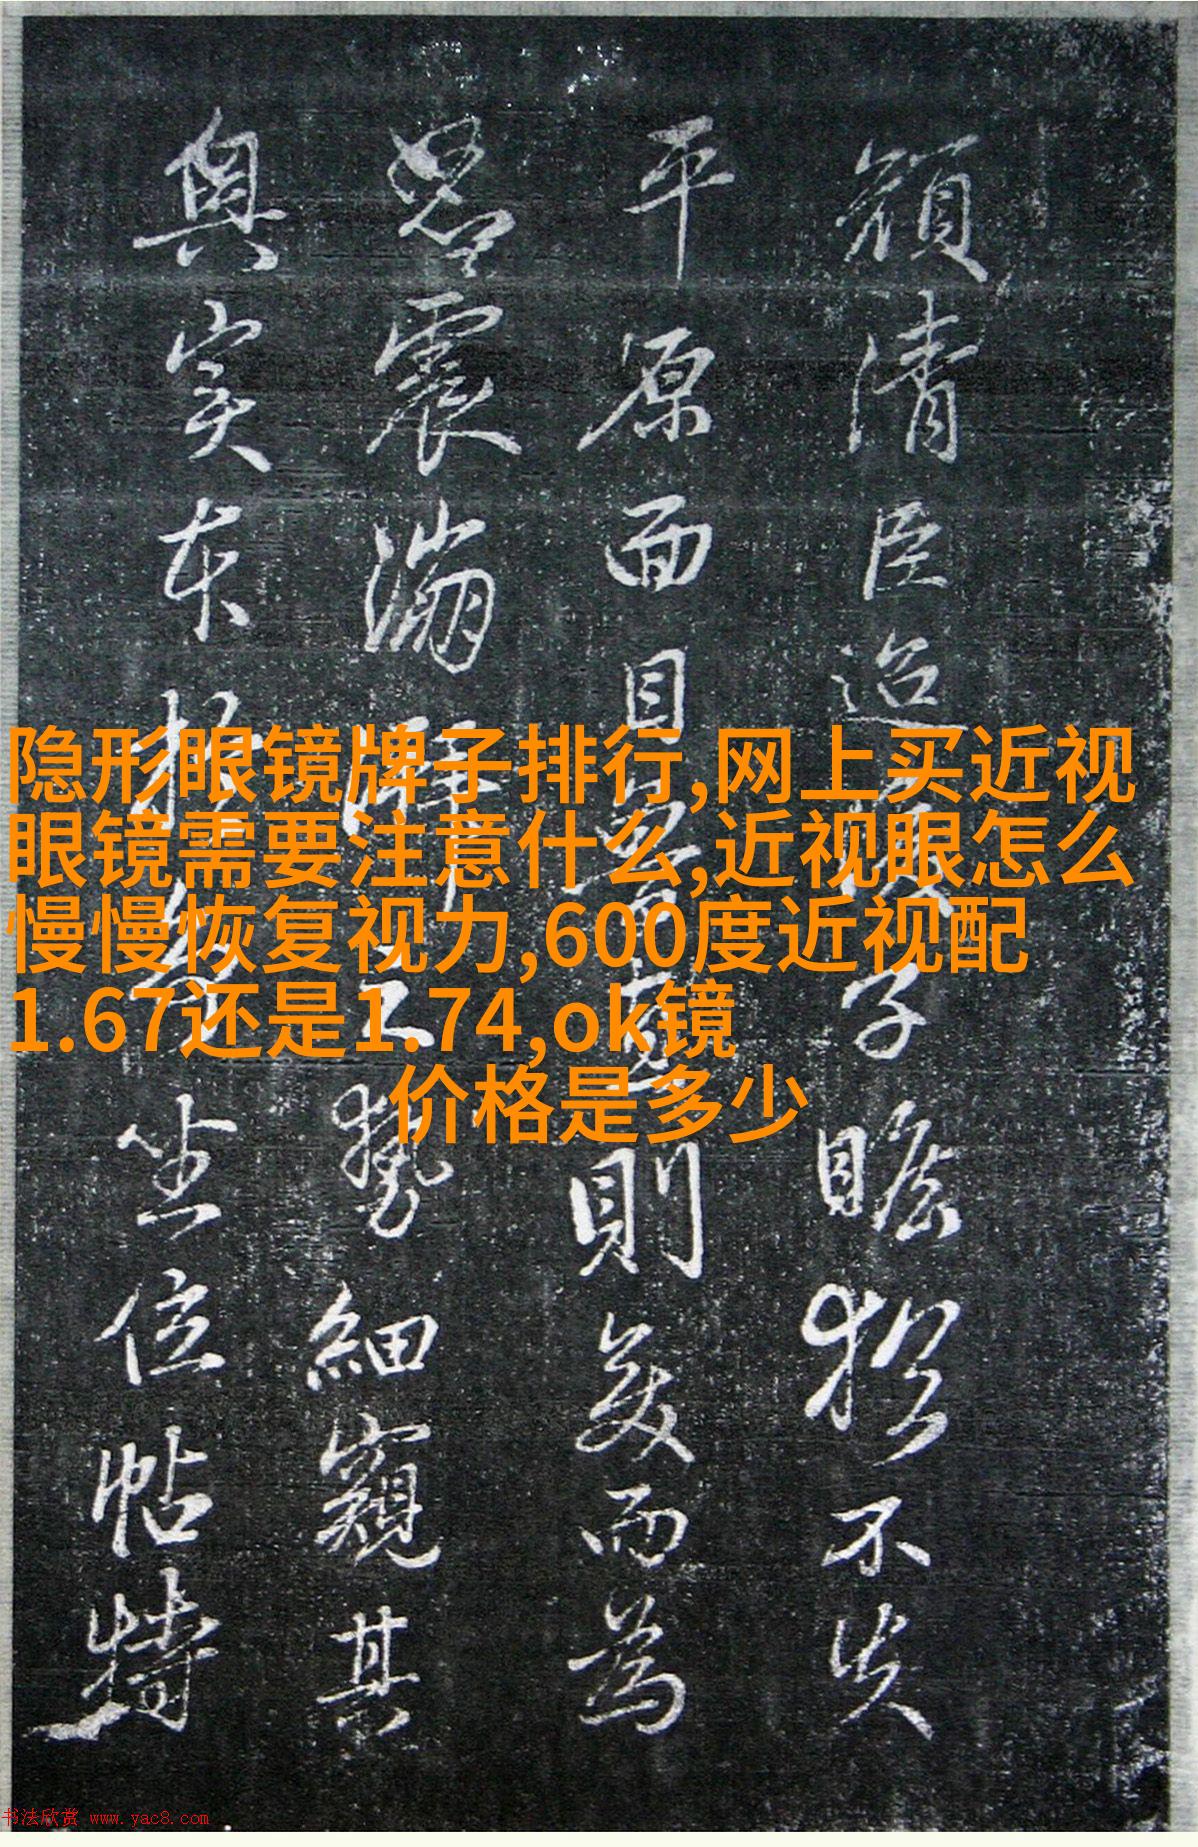 隐形眼镜牌子排行,网上买近视
眼镜需要注意什么,近视眼怎么
慢慢恢复视力,600度近视配
1.67还是1.74,ok镜
价格是多少
顏清臣迨子瞻猶不失
平原面目魯直則而為
震勢細窺其
奥实本坐位帖特
书法欣赏 www.yac8.com